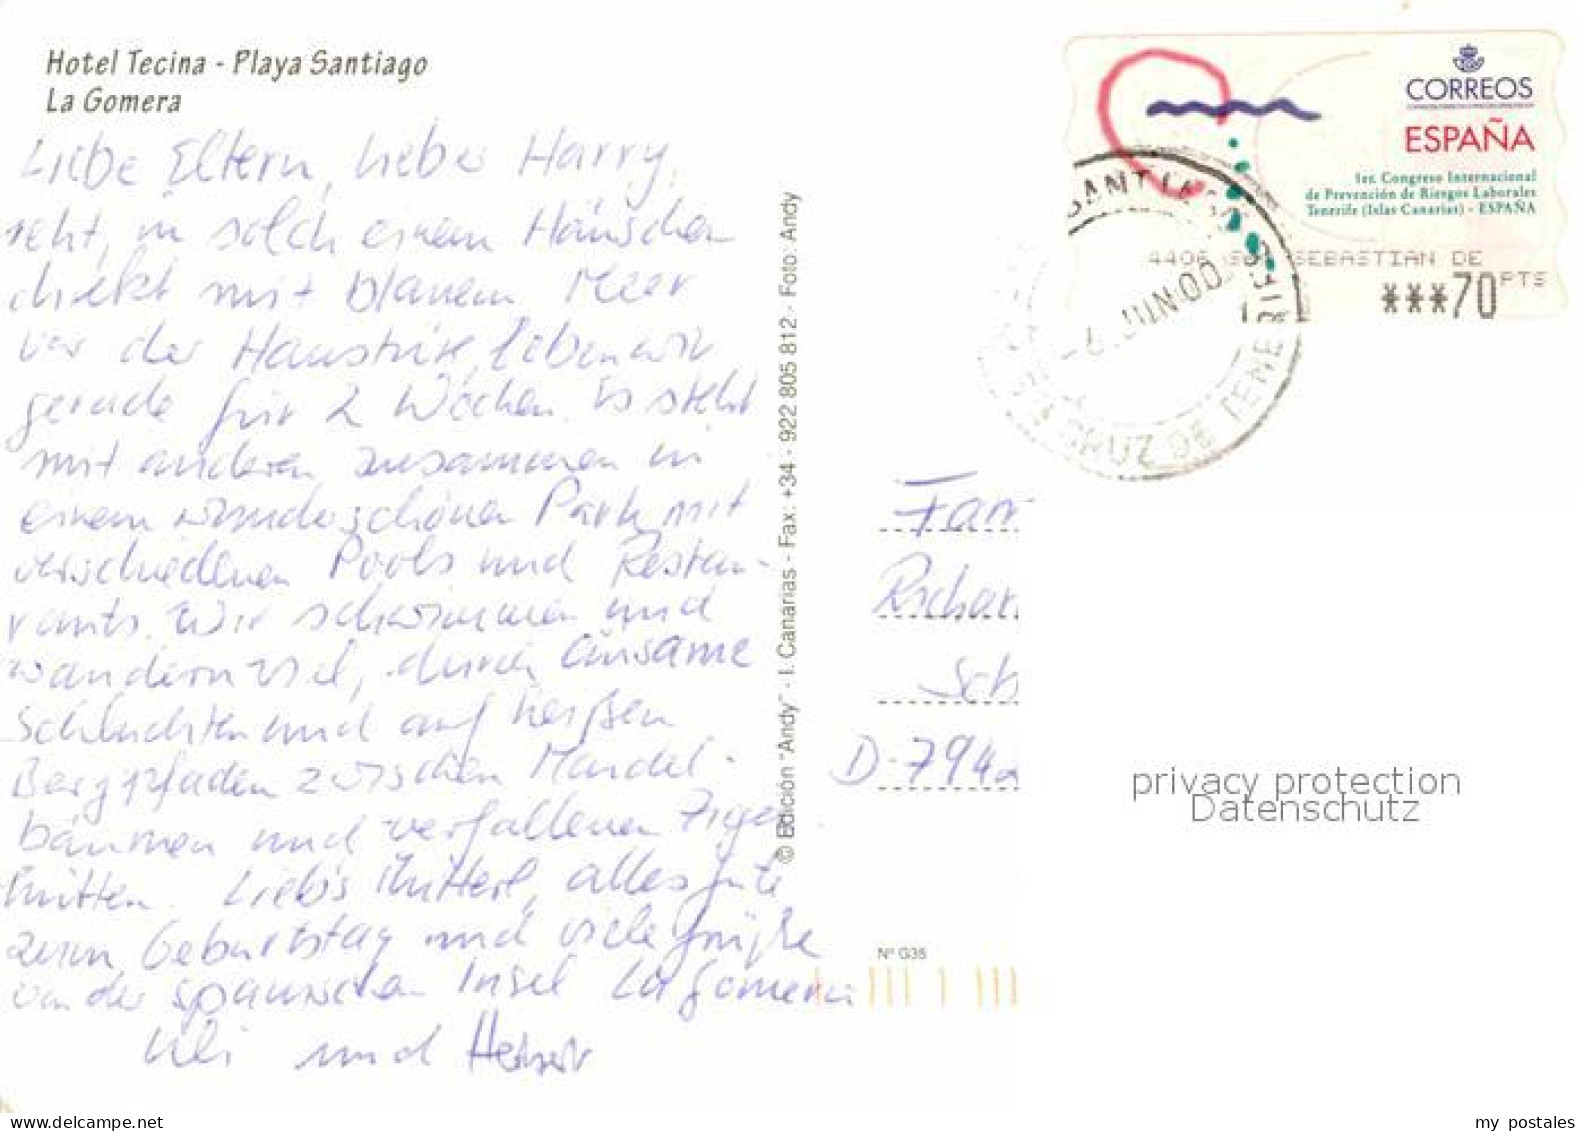 Hotel Tecina - Playa Santiago
La Gomera
Liebe Eltern, lieber Harry,
seht, in solch einem Häuschen
direkt mit blauem Meer
vor der Haustüre, leben wir
gerade für 2 Wochen. Es steht
mit anderen zusammen in
einem wunderschönen Park mit
verschiedenen Pools und Restau-
rants. Wir schwimmen und
wandern viel, durch einsame
Schluchten und auf heißen
Bergpfaden zwischen Mandel-
bäumen und verfallenen Ziegen
hütten. Lieb's Mutterl, alles gute
zum Geburtstag und viele Grüße
von der spanischen Insel La Gomera
Uli und
© Edición "Andy" - I. Canarias - Fax: +34 - 922 805 812 - Foto: Andy
CORREOS
ESPAÑA
1er. Congreso Internacional
de Prevención de Riesgos Laborales
Tenerife (Islas Canarias) - ESPAÑA
4406 SEBASTIAN DE
***70 PTS
SANTIAG
6.JUN.00
CRUZ DE TENERIFE
Fam
Richar
Sch
D-794
privacy protection
Datenschutz
Nº G35
my postales